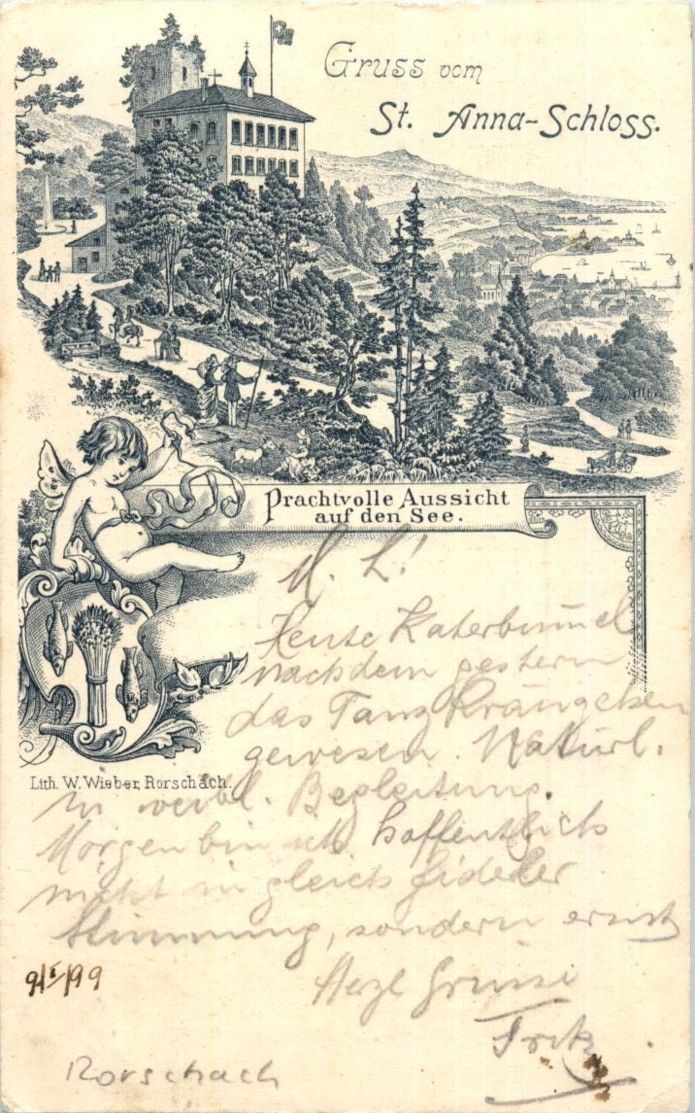 Gruss vom
St. Anna-Schloss.
Prachtvolle Aussicht
auf den See.
M. L!
Heute Katerbummel
nachdem gestern
das Tanzkränzchen
gewesen. Natürl.
Lith. W. Wieber, Rorschach.
in weibl. Begleitung.
Morgen bin ich hoffentlich
nicht in gleich fideler
Stimmung, sondern ernst
9/I/99
Herzl Grüsse
Fritz
Rorschach